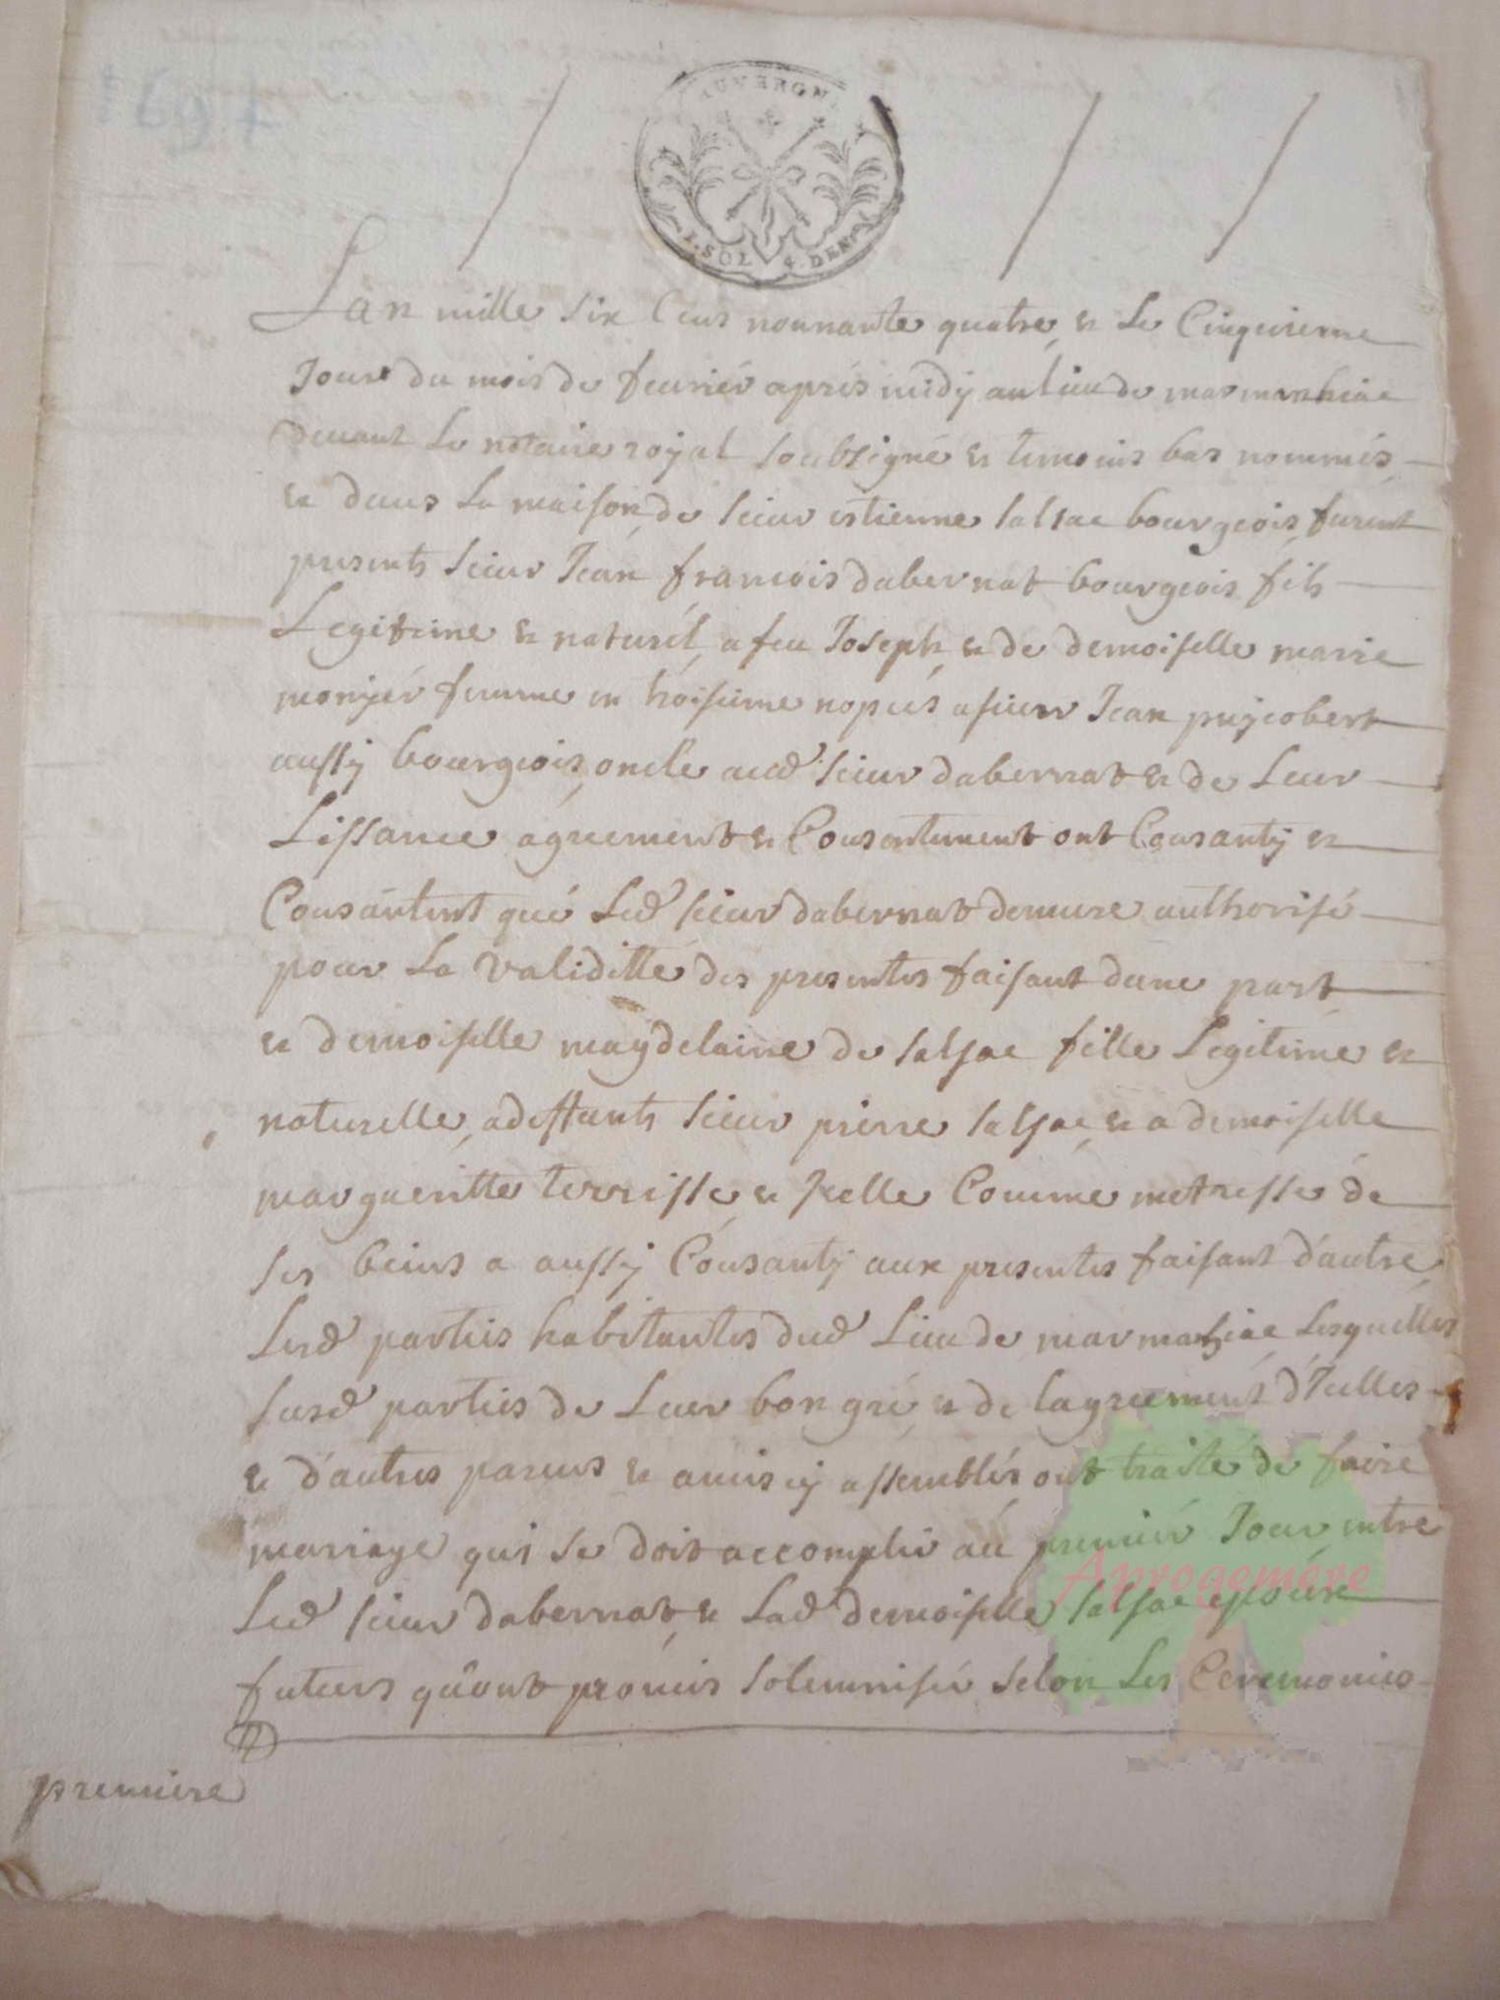 AUVERGNE
1. SOL 4. DEN
Lan mille six Cens nonnante quatre & Le Cinquieme
Jour du mois de feurier aprés midy au lieu de marmanhiac
deuant Le notaire royal soubsigné & temoins bas nommés
& dans La maison de sieur estienne salsac bourgeois furent
presents sieur Jean francois dabernat bourgeois fils
Legitime & naturel a feu Joseph & de demoiselle marie
monjer femme en troisieme nopces a sieur Jean puycobert
aussy bourgeois oncle aud sieur dabernat & de Leur
Lissance agreement & Consentement ont Consanty &
Consantent qué Led sieur dabernat demeure authorisé
pour La validitté des presentes faisant dune part
& demoiselle magdelaine de salsac fille Legitime &
naturelle a deffunts sieur pierre salsac & a demoiselle
margueritte terrisse & Jcelle Comme metresse de
ses beins a aussy Consanty aux presentes faisant d'autre
Lesd parties habitantes dud Lieu de marmanhiac Lesquelles
susd parties de Leur bon gré & de lagreement d'Jcelles
& d'autres parens & amis cy assemblés ont traité de faire
mariage qui se doit accomplir au premier Jour entre
Led sieur dabernat & Lad demoiselle salsac epoux
futeurs qu'ont promis solemniser selon Les Ceremonies
premiere
Aprogemere